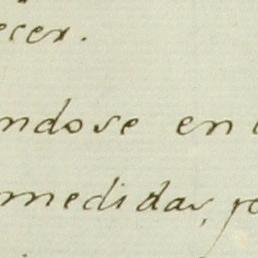 ecer.
ndose en
medidas, p